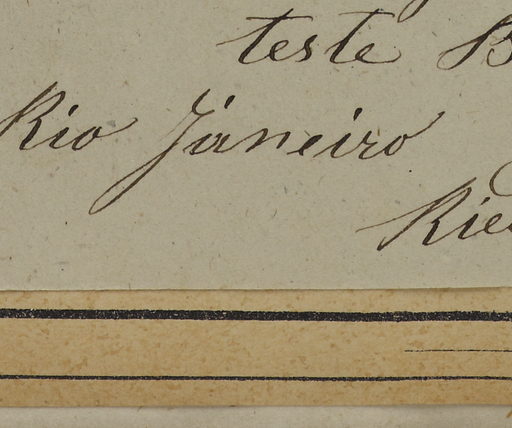 teste B
Rio Janeiro
Rie